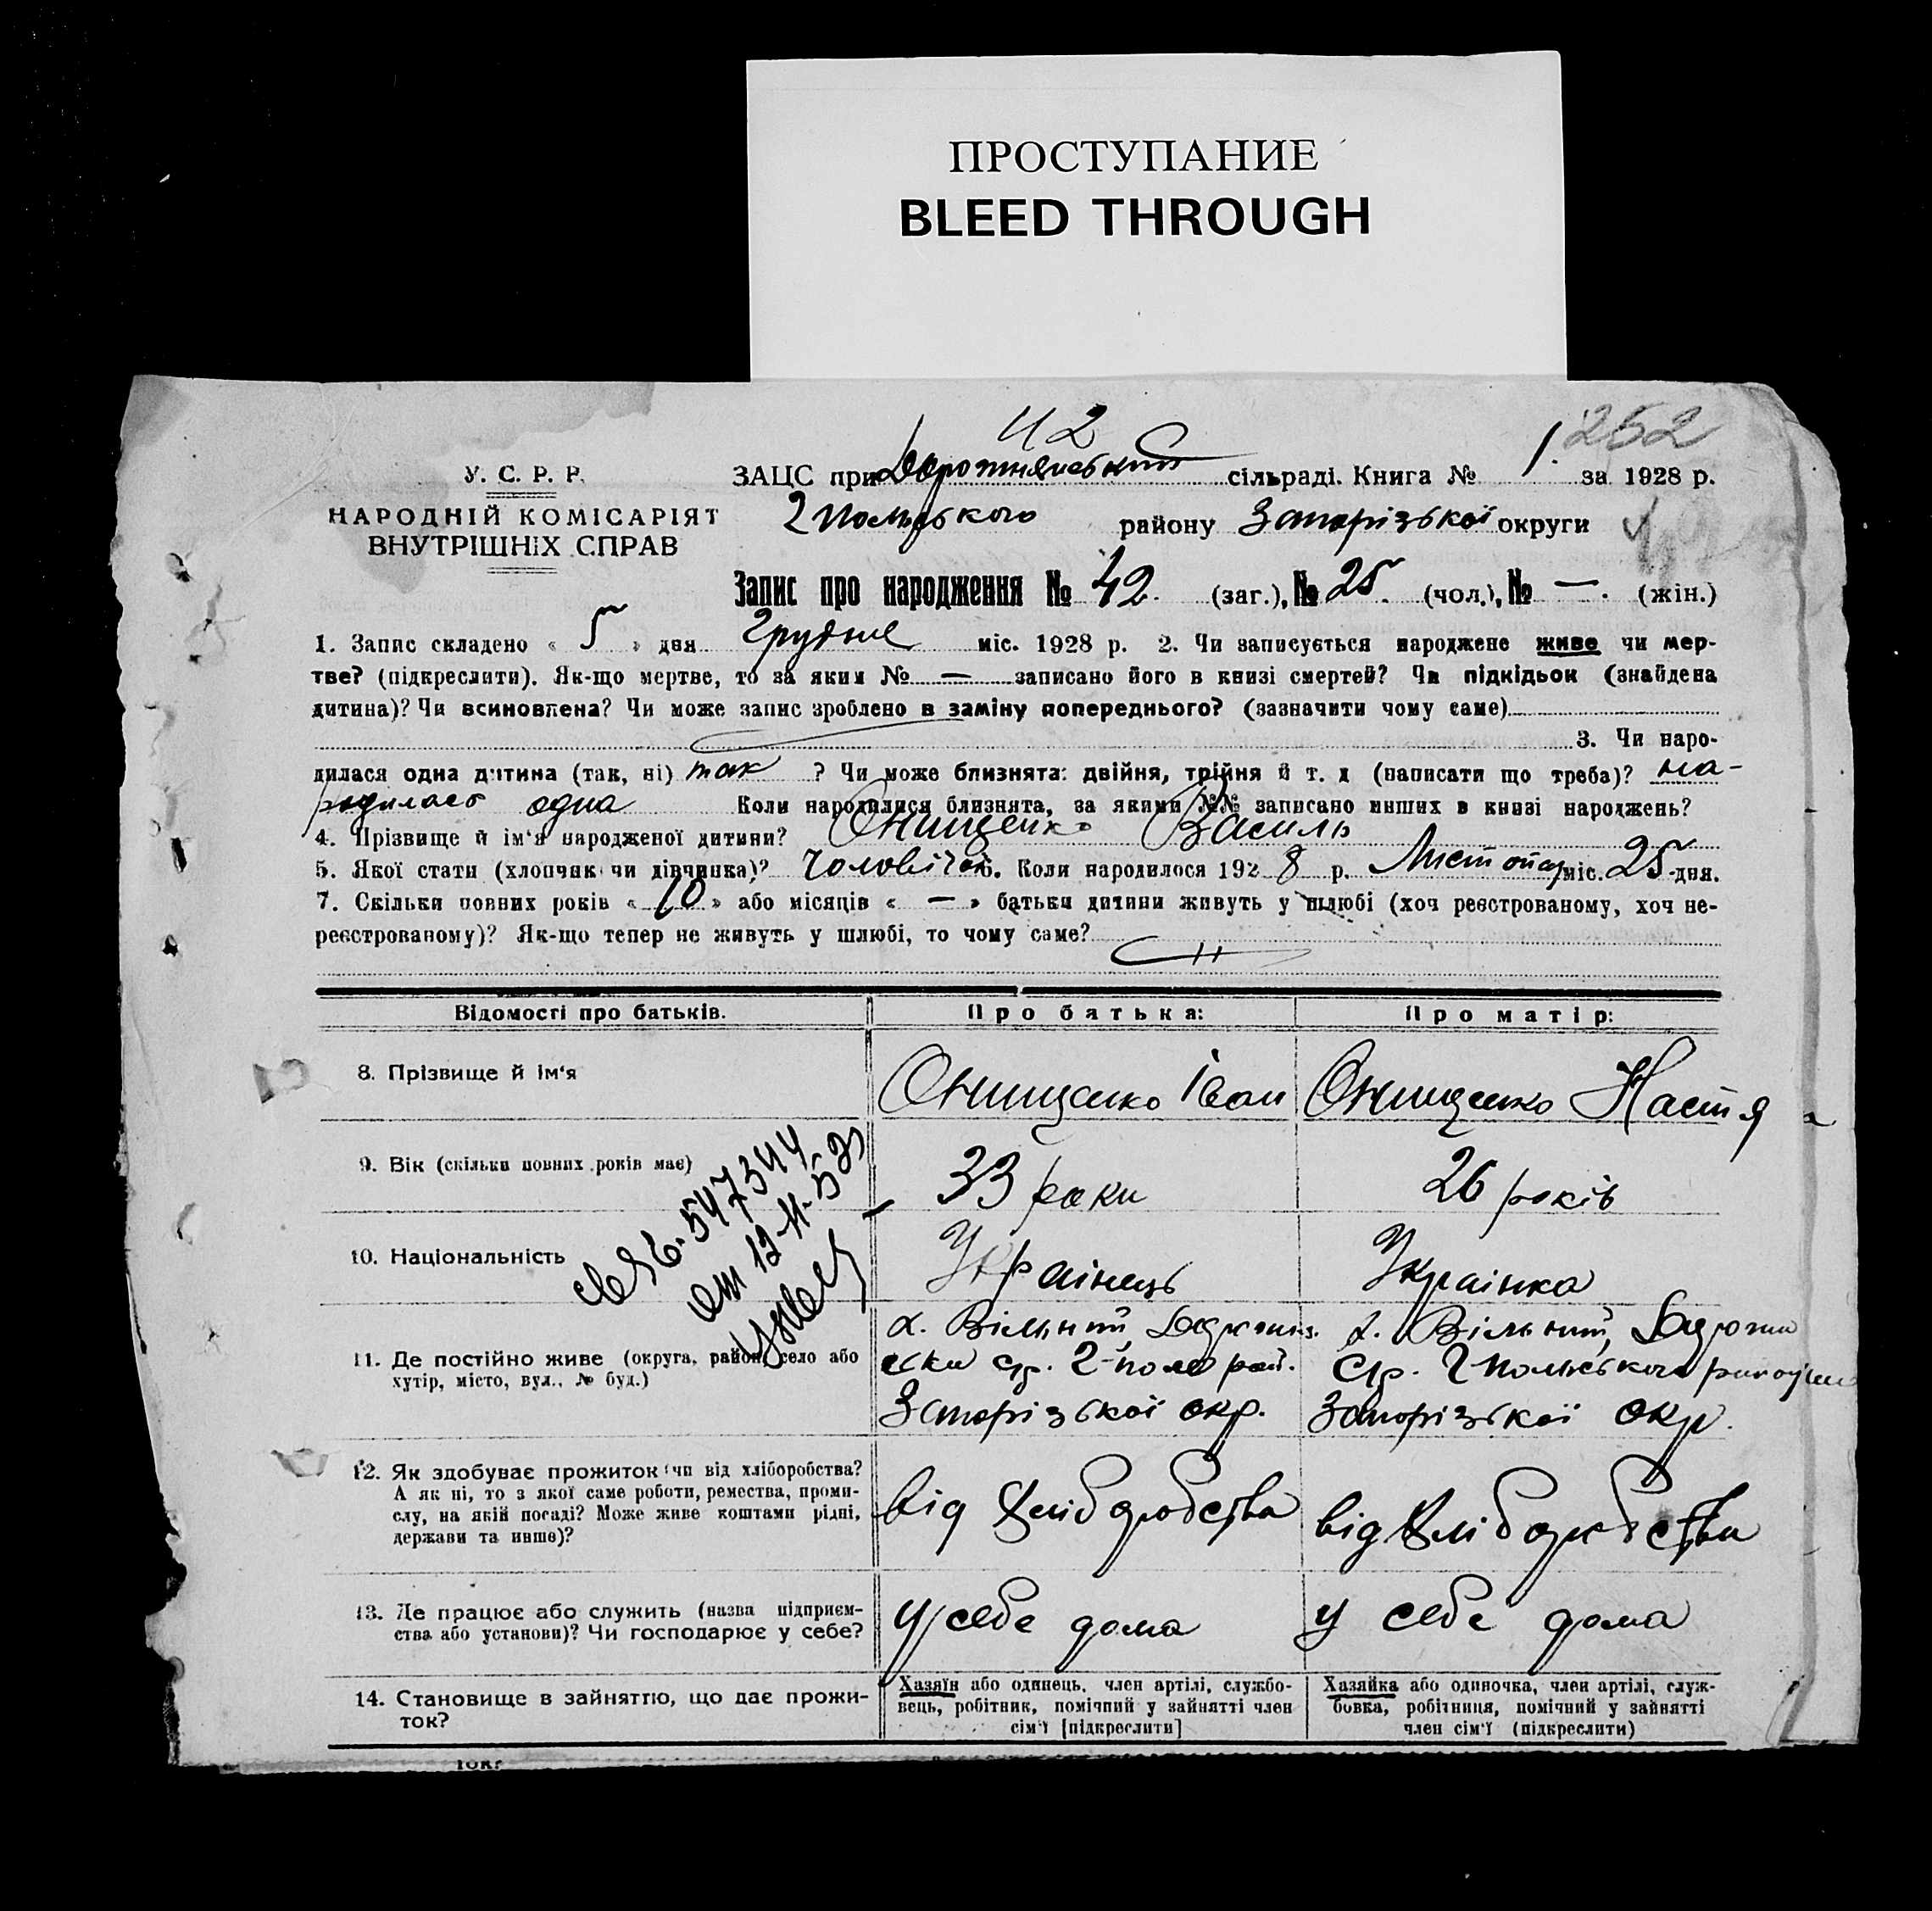 ПРОСТУПАНИЕ
BLEED THROUGH
42
252
У. С. Р. Р.
НАРОДНІЙ КОМІСАРІЯТ
ВНУТРІШНІХ СПРАВ
ЗАЦС при сільраді. Книга № 1. за 1928 р.
району Запорізької округи
Запис про народження № 42. (заг.), № 25. (чол.), № —. (жін.)
1. Запис складено « 5 » дня Грудня міс. 1928 р. 2. Чи записується народжене живе чи мер-
тве? (підкреслити). Як-що мертве, то за яким № — записано його в книзі смертей? Чи підкідьок (знайдена
дитина)? Чи всиновлена? Чи може запис зроблено в заміну попереднього? (зазначити чому саме)
3. Чи наро-
дилася одна дитина (так, ні) так ? Чи може близнята: двійня, трійня й т. д (написати що треба)? на-
родилась одна Коли народилися близнята, за якими №№ записано инших в книзі народжень?
4. Прізвище й ім'я народженої дитини? Онищенко Василь
5. Якої стати (хлопчик чи дівчинка)? Чоловічої 6. Коли народилося 1928 р. Листопад міс. 25 дня.
7. Скільки повних років « 10 » або місяців « — » батьки дитини живуть у шлюбі (хоч реєстрованому, хоч не-
реєстрованому)? Як-що тепер не живуть у шлюбі, то чому саме?
Відомості про батьків. Про батька: Про матір:
8. Прізвище й ім'я Онищенко Іван Онищенко Настя
9. Вік (скільки повних років має) 33 роки 26 років
10. Національність Українець Українка
547344
от 12-11-52
11. Де постійно живе (округа, район, село або
хутір, місто, вул., № буд.)
х. Вільний,
с/р. 2-пол рай.
Запорізької окр.
х. Вільний,
с/р. 2 Польського району
Запорізької окр.
12. Як здобуває прожиток чи від хліборобства?
А як ні, то з якої саме роботи, ремества, проми-
слу, на якій посаді? Може живе коштами рідні,
держави та инше)?
від Хліборобства
від Хліборобства
13. Де працює або служить (назва підприєм-
ства або установи)? Чи господарює у себе?
у себе дома
у себе дома
14. Становище в зайняттю, що дає прожи-
ток?
Хазяїн або одинець, член артілі, службо-
вець, робітник, помічний у зайнятті член
сім'ї [підкреслити]
Хазяйка або одиночка, член артілі, служ-
бовка, робітниця, помічний у зайнятті
член сім'ї (підкреслити)
ток?